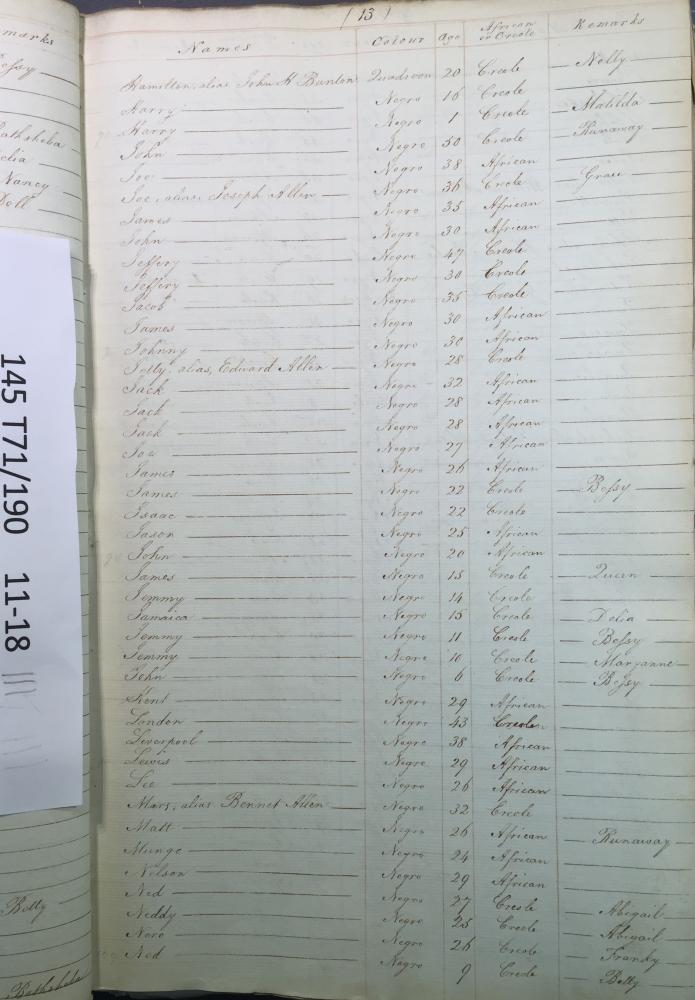 marks
Bessy
Bathsheba
Delia
Nancy
Doll
145 T71/190 11-18
Betty
Bathsheba
(13)
Names Colour Age African or Creole Remarks
Hamilton, alias John H Bunton Quadroon 20 Creole Nelly
Harry Negro 16 Creole
Harry Negro 1 Creole Matilda
John Negro 50 Creole Runaway
Joe Negro 38 African
Joe, alias, Joseph Allen Negro 36 Creole Grace
James Negro 35 African
John Negro 30 African
Jeffery Negro 47 Creole
Jeffery Negro 30 Creole
Jacob Negro 35 Creole
James Negro 30 African
Johnny Negro 30 African
Jetty, alias, Edward Allen Negro 28 Creole
Jack Negro 32 African
Jack Negro 28 African
Jack Negro 28 African
Joe Negro 27 African
James Negro 26 African
James Negro 22 Creole Bessy
Isaac Negro 22 Creole
Jason Negro 25 African
John Negro 20 African
James Negro 15 Creole Queen
Jemmy Negro 14 Creole
Jamaica Negro 15 Creole Delia
Jemmy Negro 11 Creole Bessy
Jemmy Negro 10 Creole Maryanne
John Negro 6 Creole Bessy
Kent Negro 29 African
London Negro 43 Creole
Liverpool Negro 38 African
Lewis Negro 29 African
Lee Negro 26 African
Mars, alias Bennet Allen Negro 32 Creole
Matt Negro 26 African Runaway
Munge Negro 24 African
Nelson Negro 29 African
Ned Negro 27 Creole Abigail
Neddy Negro 25 Creole Abigail
Nero Negro 26 Creole Frandy
Ned Negro 9 Creole Betty